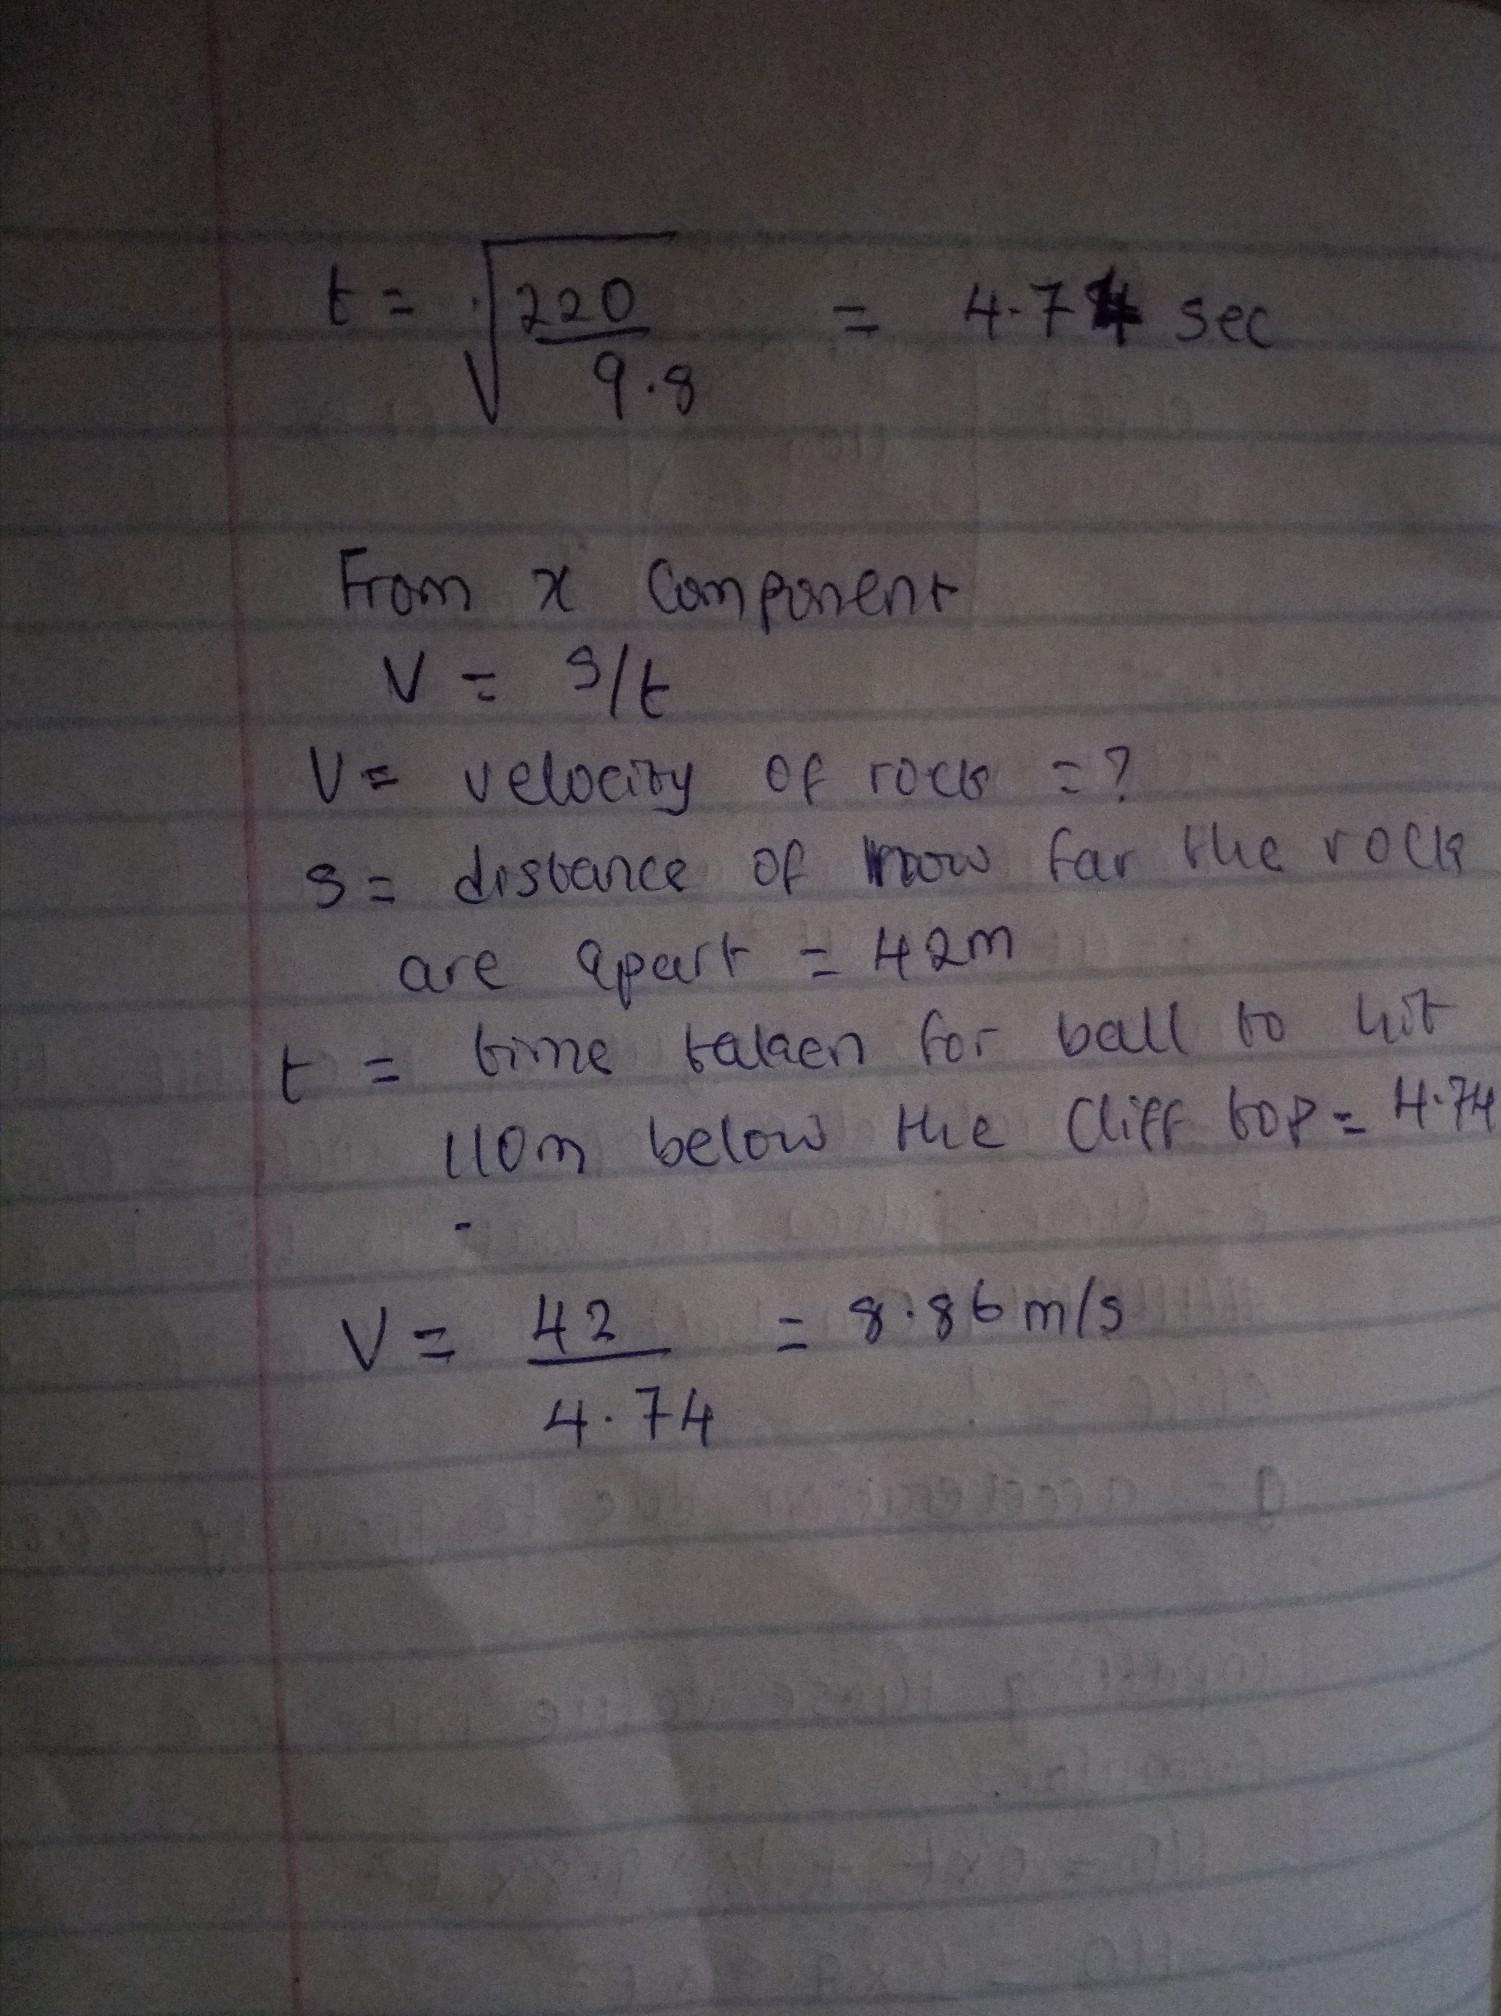 t = √220/9.8 = 4.74 sec
From x component
V = s/t
V = velocity of rock = ?
s = distance of how far the rock
are apart = 42m
t = time taken for ball to hit
110m below the cliff top = 4.74
V = 42/4.74 = 8.86 m/s